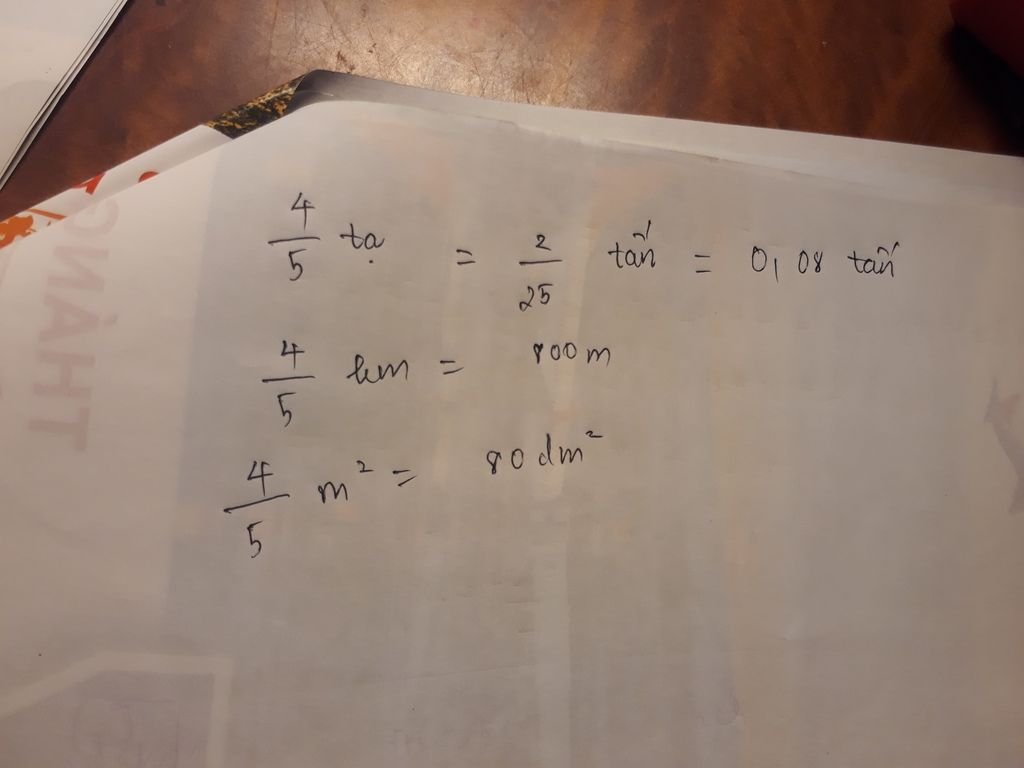 4/5 tạ = 2/25 tấn = 0,08 tấn
4/5 km = 800 m
4/5 m² = 80 dm²
THÀNG